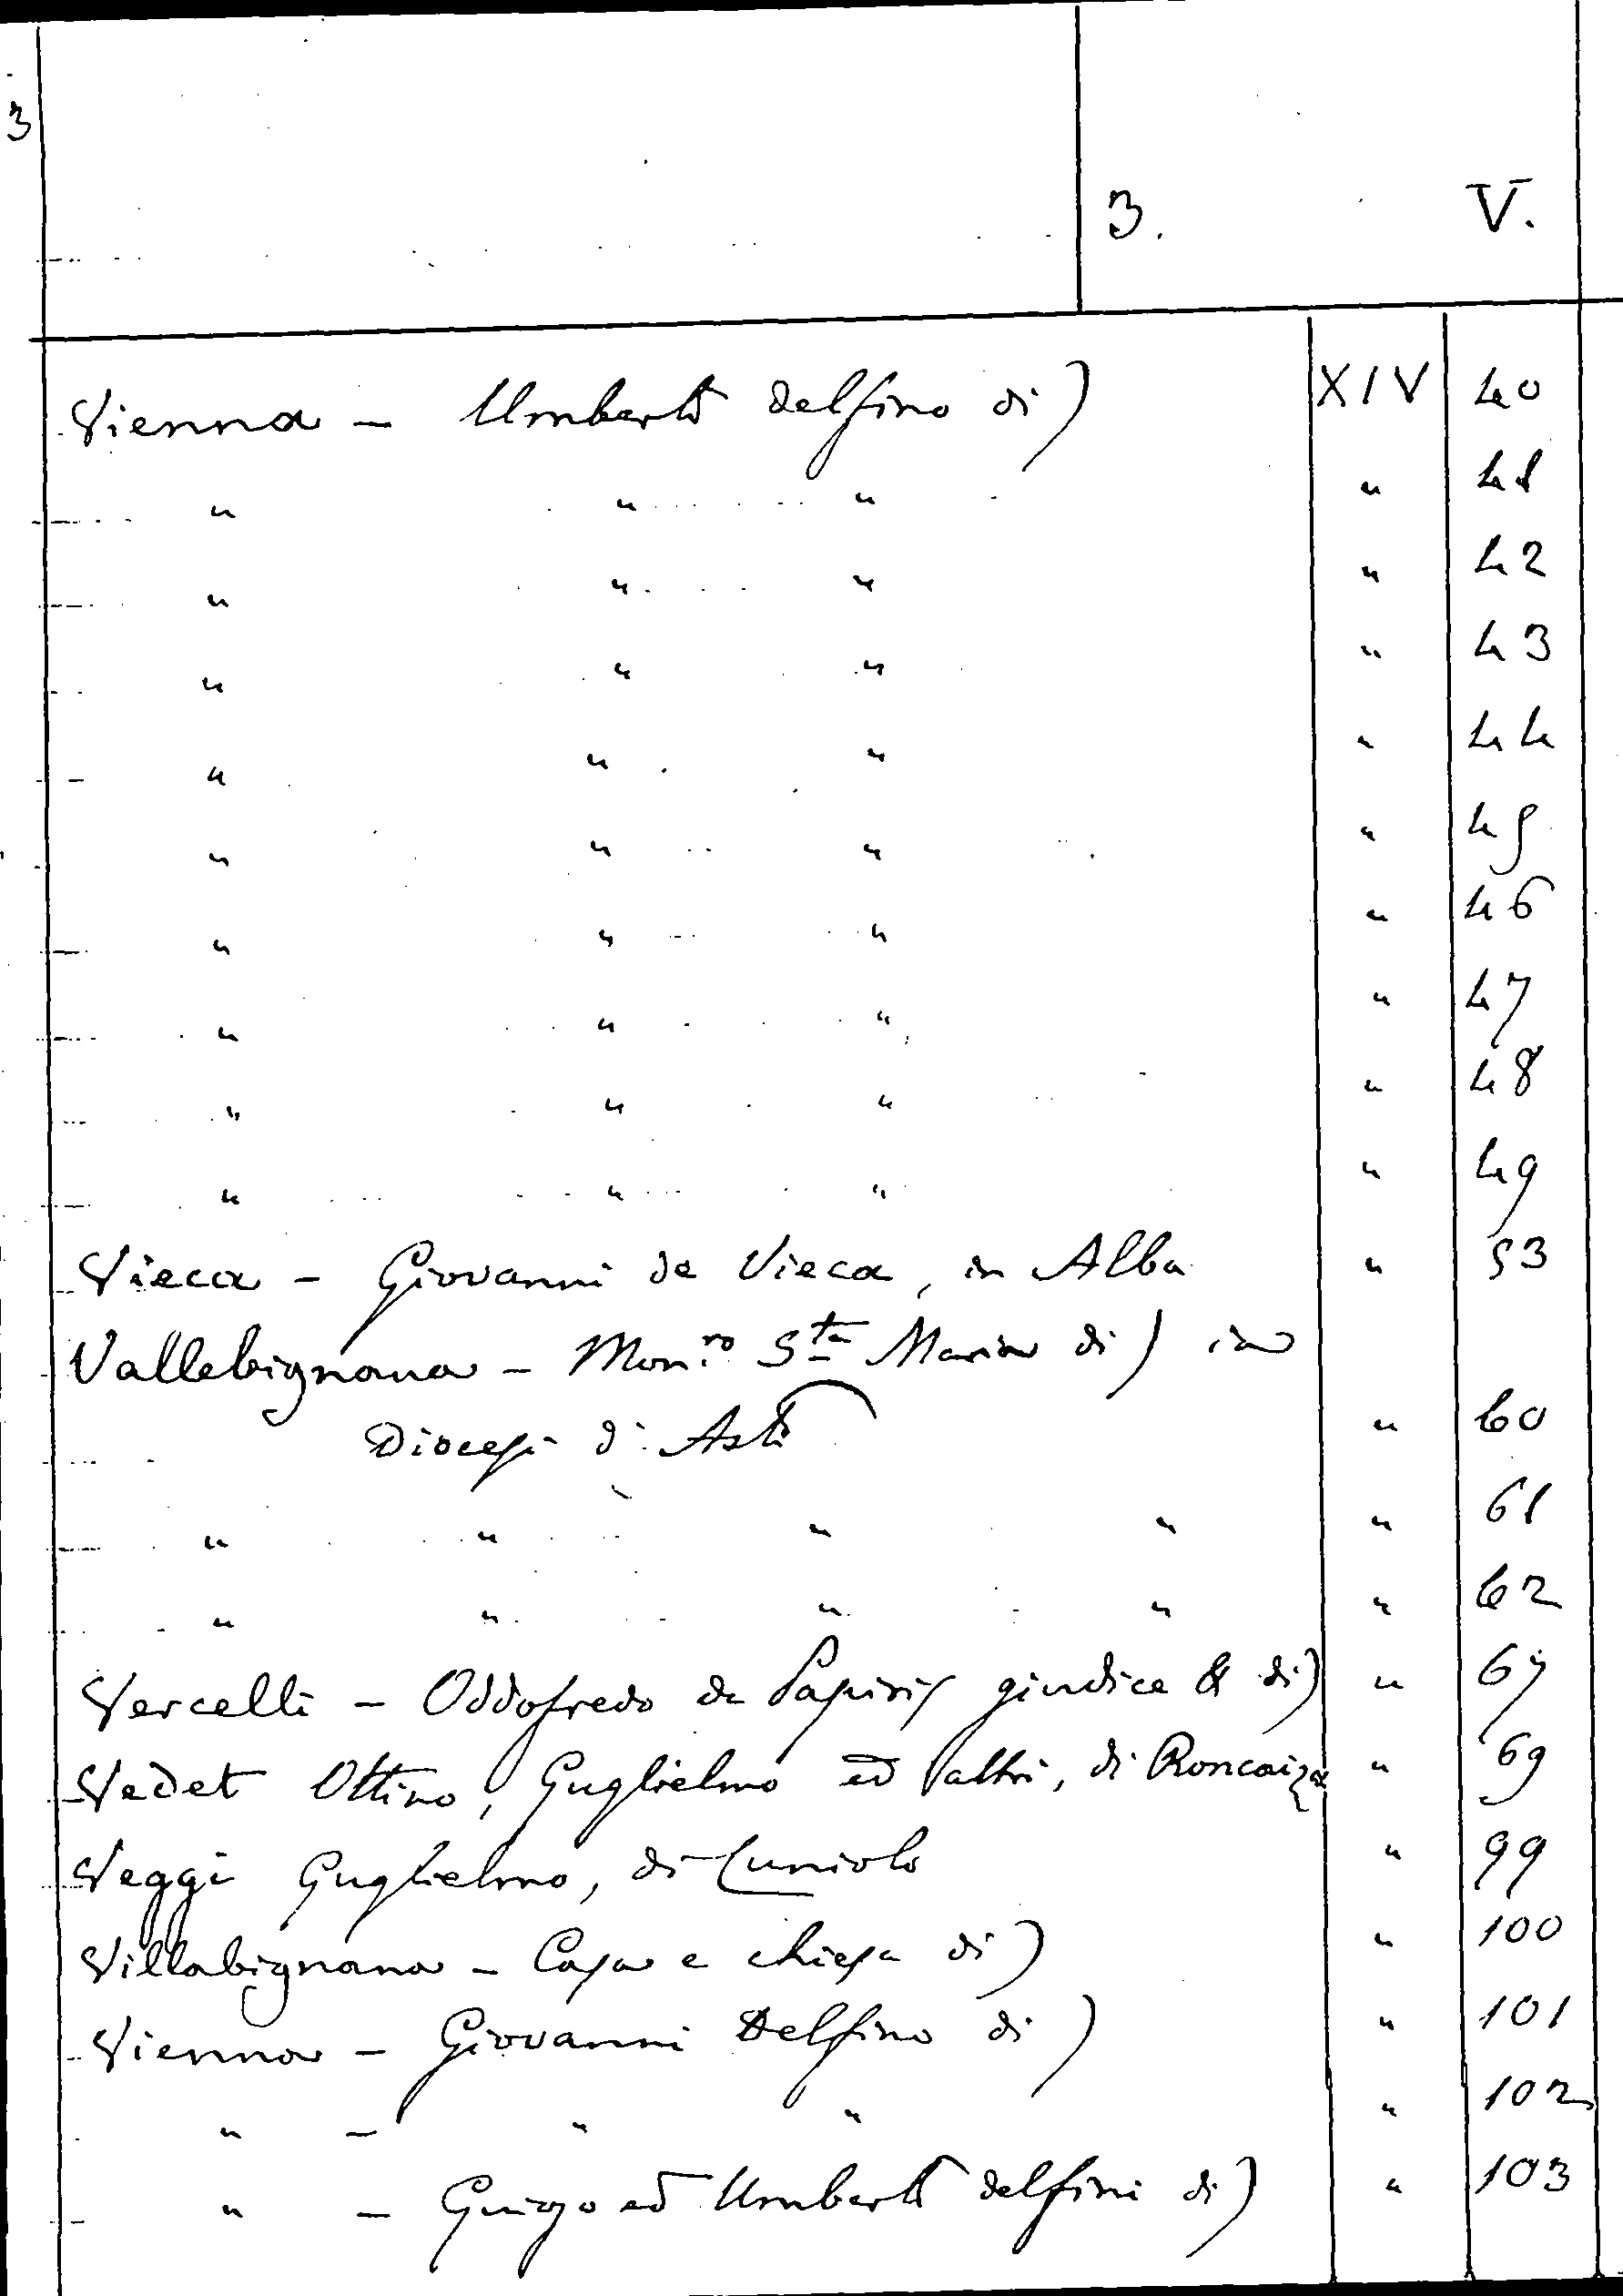 3
3. V.
Vienna - Umberto delfino di) XIV 40
" " " " 41
" " " " 42
" " " " 43
" " " " 44
" " " " 45
" " " " 46
" " " " 47
" " " " 48
" " " " 49
Vieca - Giovanni de Vieca, in Alba " 53
Vallebignana - Mon.ro Sta Maria di) in
Diocesi di Asti " 60
" " " " " 61
" " " " " 62
Vercelli - Oddofredo de Papiris giudice & di) " 67
Vedet Ottino, Guglielmo ed altri, di Roncaiza " 69
Veggi Guglielmo, di Cuniolo " 99
Villabignana - Casa e chiesa di) " 100
Vienna - Giovanni Delfino di) " 101
" - " " " 102
" - Guigo ed Umberto delfini di) " 103